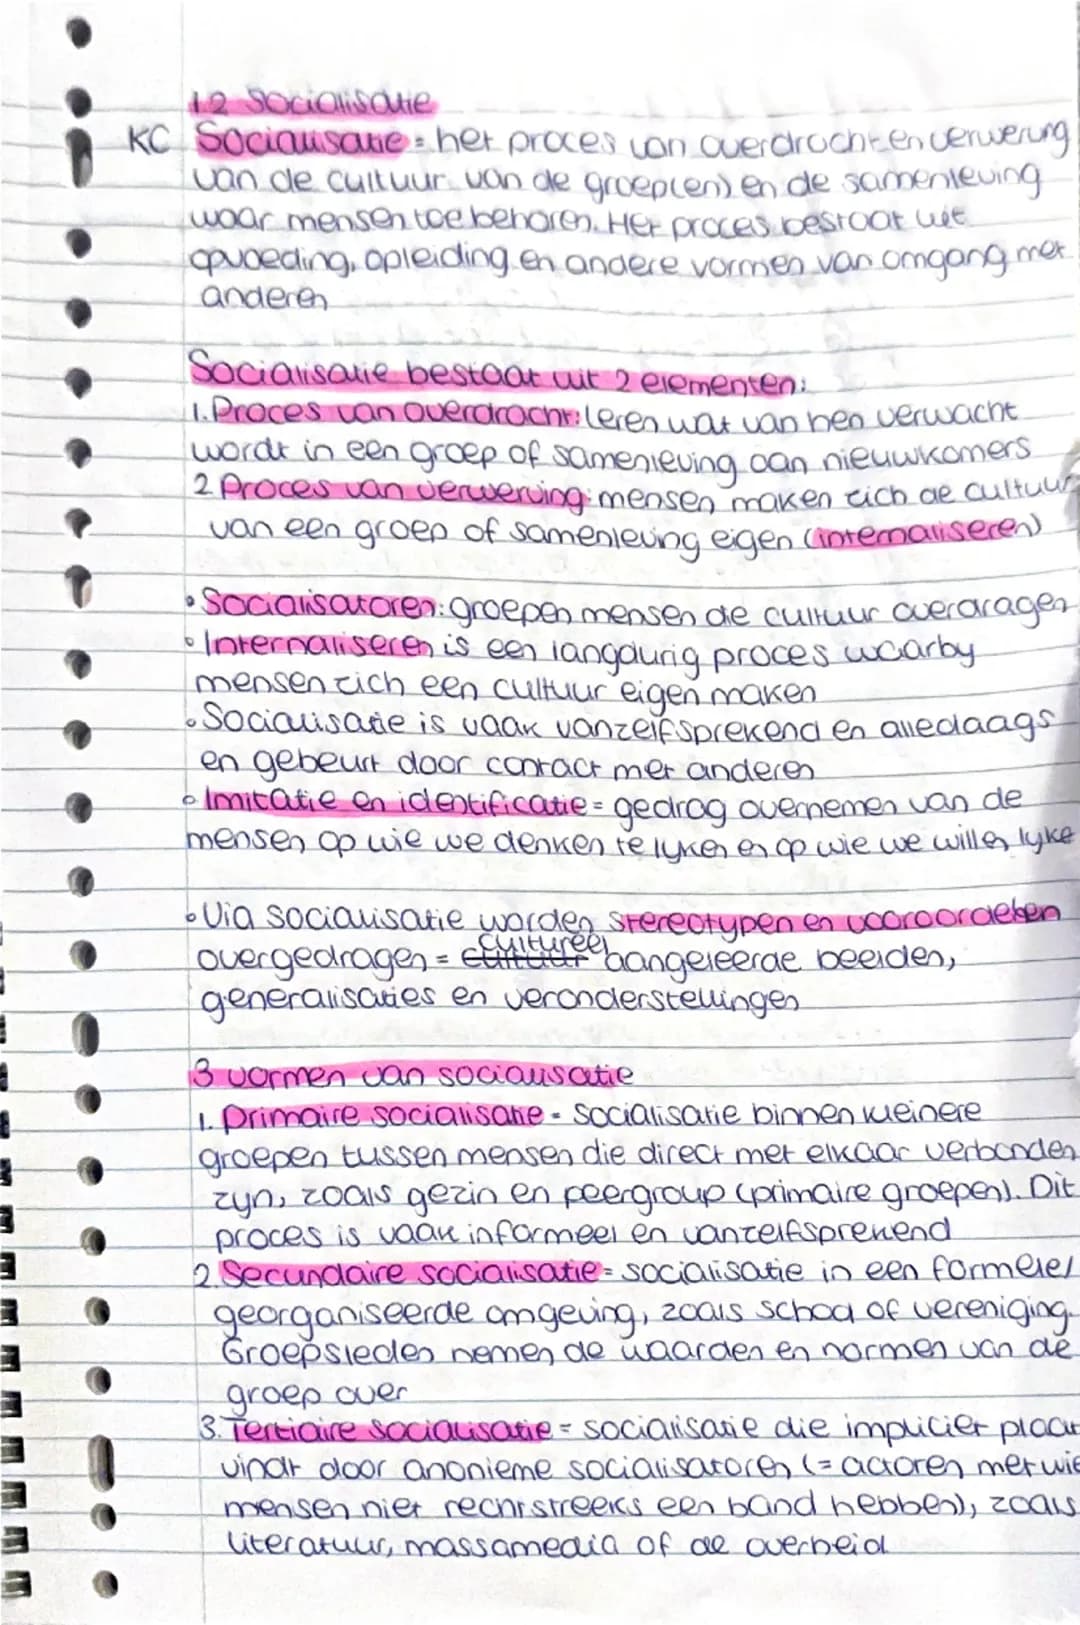 1.2 Socialisatie
KC Socialisatie = het proces van overdracht en verwerving
van de cultuur van de groep(en) en de samenleving
waar mensen toe behoren. Het proces bestaat uit
opvoeding, opleiding en andere vormen van omgang met
anderen
Socialisatie bestaat uit 2 elementen:
1. Proces van overdracht: leren wat van hen verwacht
wordt in een groep of samenleving aan nieuwkomers
2 Proces van verwerving: mensen maken zich de cultuur
van een groep of samenleving eigen (internaliseren)
• Socialisatoren: groepen mensen die cultuur overdragen
• Internaliseren is een langdurig proces waarby
mensen zich een cultuur eigen maken
• Socialisatie is vaak vanzelfsprekend en alledaags
en gebeurt door contact met anderen
• Imitatie en identificatie = gedrag overnemen van de
mensen op wie we denken te lyken en op wie we willen lyke
• Via socialisatie worden stereotypen en vooroordelen
overgedragen = cultuur cultureel aangeleerde beelden,
generalisaties en veronderstellingen
3 vormen van socialisatie
1. Primaire socialisatie = socialisatie binnen kleinere
groepen tussen mensen die direct met elkaar verbonden
zyn, zoals gezin en peergroup (primaire groepen). Dit
proces is vaak informeel en vanzelfsprekend
2. Secundaire socialisatie = socialisatie in een formele/
georganiseerde omgeving, zoals school of vereniging.
Groepsleden nemen de waarden en normen van de
groep over
3. Tertiaire socialisatie = socialisatie die impliciet plaat
vindt door anonieme socialisatoren (= actoren met wie
mensen niet rechtstreeks een band hebben), zoals
literatuur, massamedia of de overheid